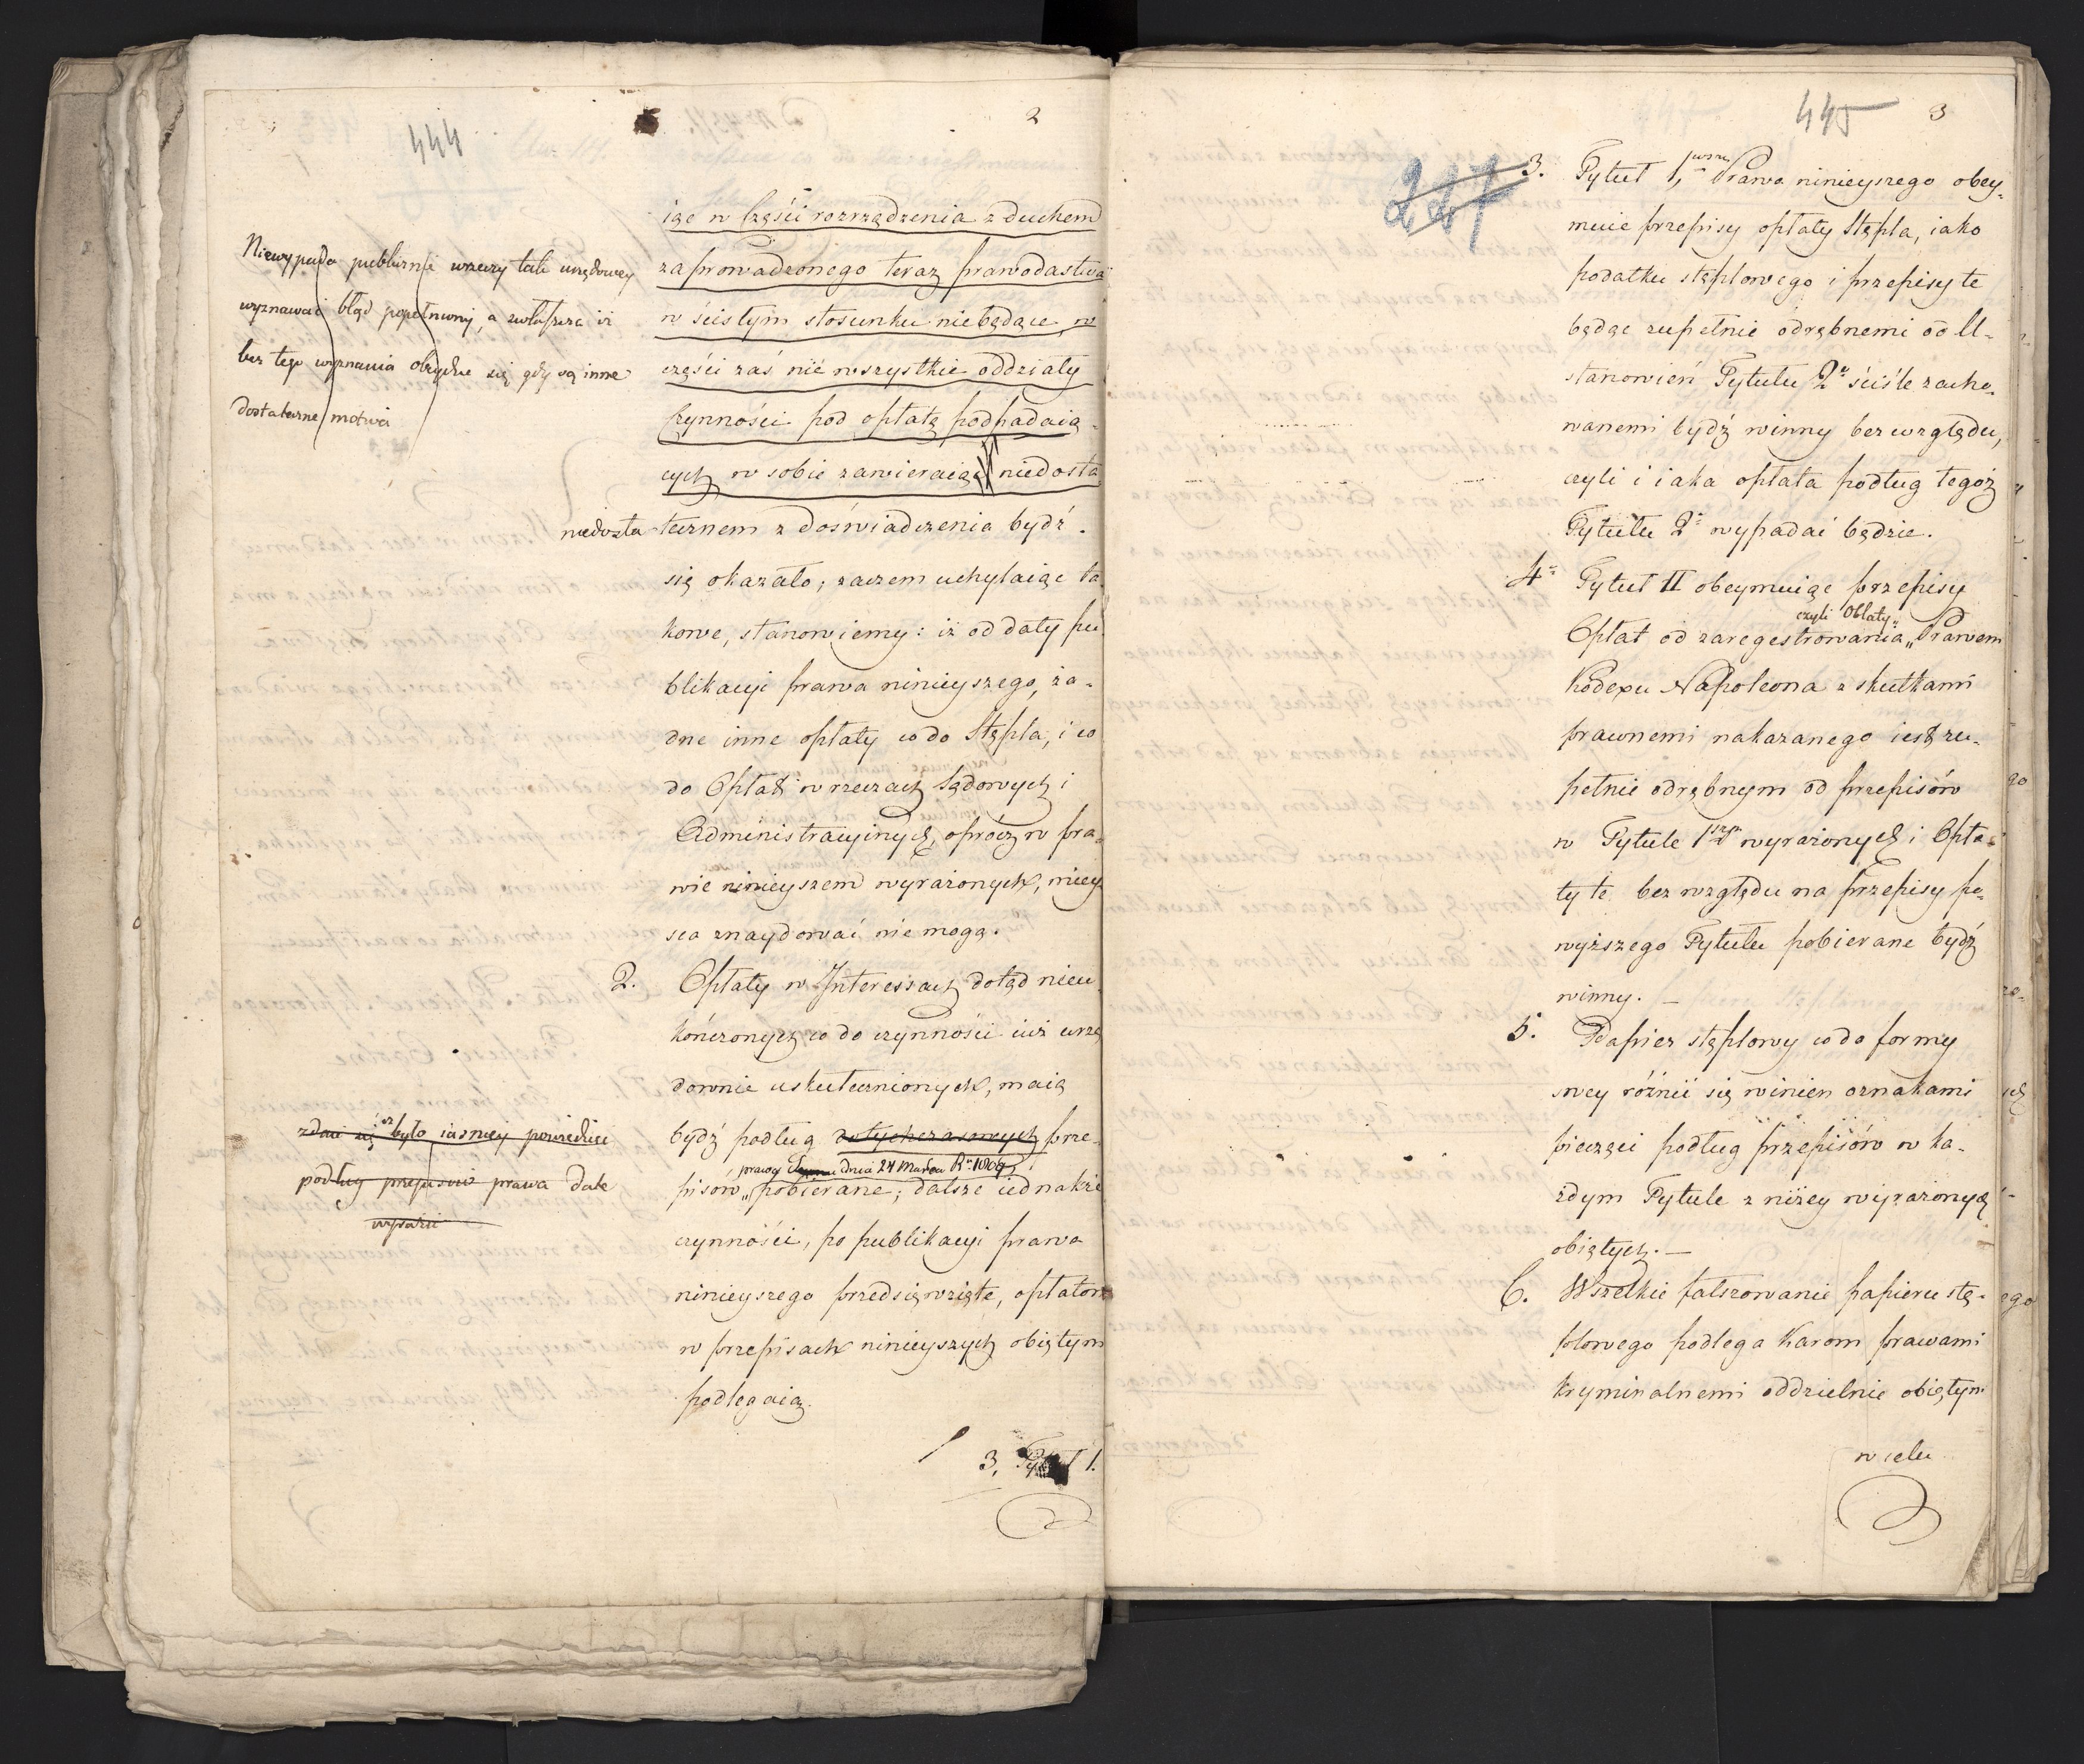 444
2
Niewypada publicznie wrzeczy tak urzędowey
wyznawać błąd popełniony, a zwłaszcza iż
bez tego wyznania obeydzie się gdy są inne
dostateczne motiva
iąc w Części rozrządzenia z duchem
zaprowadzonego teraz prawodastwa
w ścisłym stosunku niebędące, w
części zaś nie wszystkie oddziały
Czynności pod opłatę podpadaią-
cych w sobie zawieraiąc niedosta
niedosta tecznem z doświadczenia bydź
się okazało; zaczem uchylaiąc ta
kowe, stanowiemy: iż od daty pu
blikacyi prawa ninieyszego, ża-
dne inne opłaty co do Stępla, i co
do Opłat w rzeczach Sądowych i
Administracyinych, oprócz w pra-
wie ninieyszem wyrażonych, miey
sca znaydować nie mogą.
2. Opłaty w Interessach dotąd nieu
kończonych co do czynności iuż urzę
downie uskutecznionych, maią
bydź podług dotychczasowych prze-
prawa Seymu dnia 24 Marca Ru 1809
pisów „ pobierane; dalsze iednakże
czynności, po publikacyi prawa
ninieyszego przedsięwzięte, opłatom
w przepisach ninieyszych obiętym
podlegaią.
zdaie się by było iasniey powiedziec
podług przepisów prawa date
wyrazić
3. Tytuł 1.
445
3
227
3. Tytuł 1, wszy Prawa ninieyszego obey-
muie przepisy opłaty Stępla, iako
podatku stęplowego i przepisy te
będąc zupełnie odrębnemi od U-
stanowień Tytułu 2o ściśle zacho-
wanemi bydź winny bez względu,
czyli i iaka opłata podług tegoż
Tytułu 2o wypadać będzie.
4o Tytuł II obeymuiąc przepisy
czyli Oblaty„
Opłat od zaregestrowania „ Prawem
Kodexu Napoleona z skutkami
prawnemi nakazanego iest zu-
pełnie odrębnym od przepisów
w Tytule 1szym wyrażonych i Opła-
ty te bez względu na przepisy po-
wyższego Tytułu pobierane bydź
winny. –
5. Papier stęplowy co do formy
swey różnić się winien oznakami
pieczęci podług przepisów w ka-
żdym Tytule z niżey wyrażonych
obiętych. –
6. Wszelkie fałszowanie papieru stę-
plowego podlega Karom prawami
kryminalnemi oddzielnie obiętym
w celu